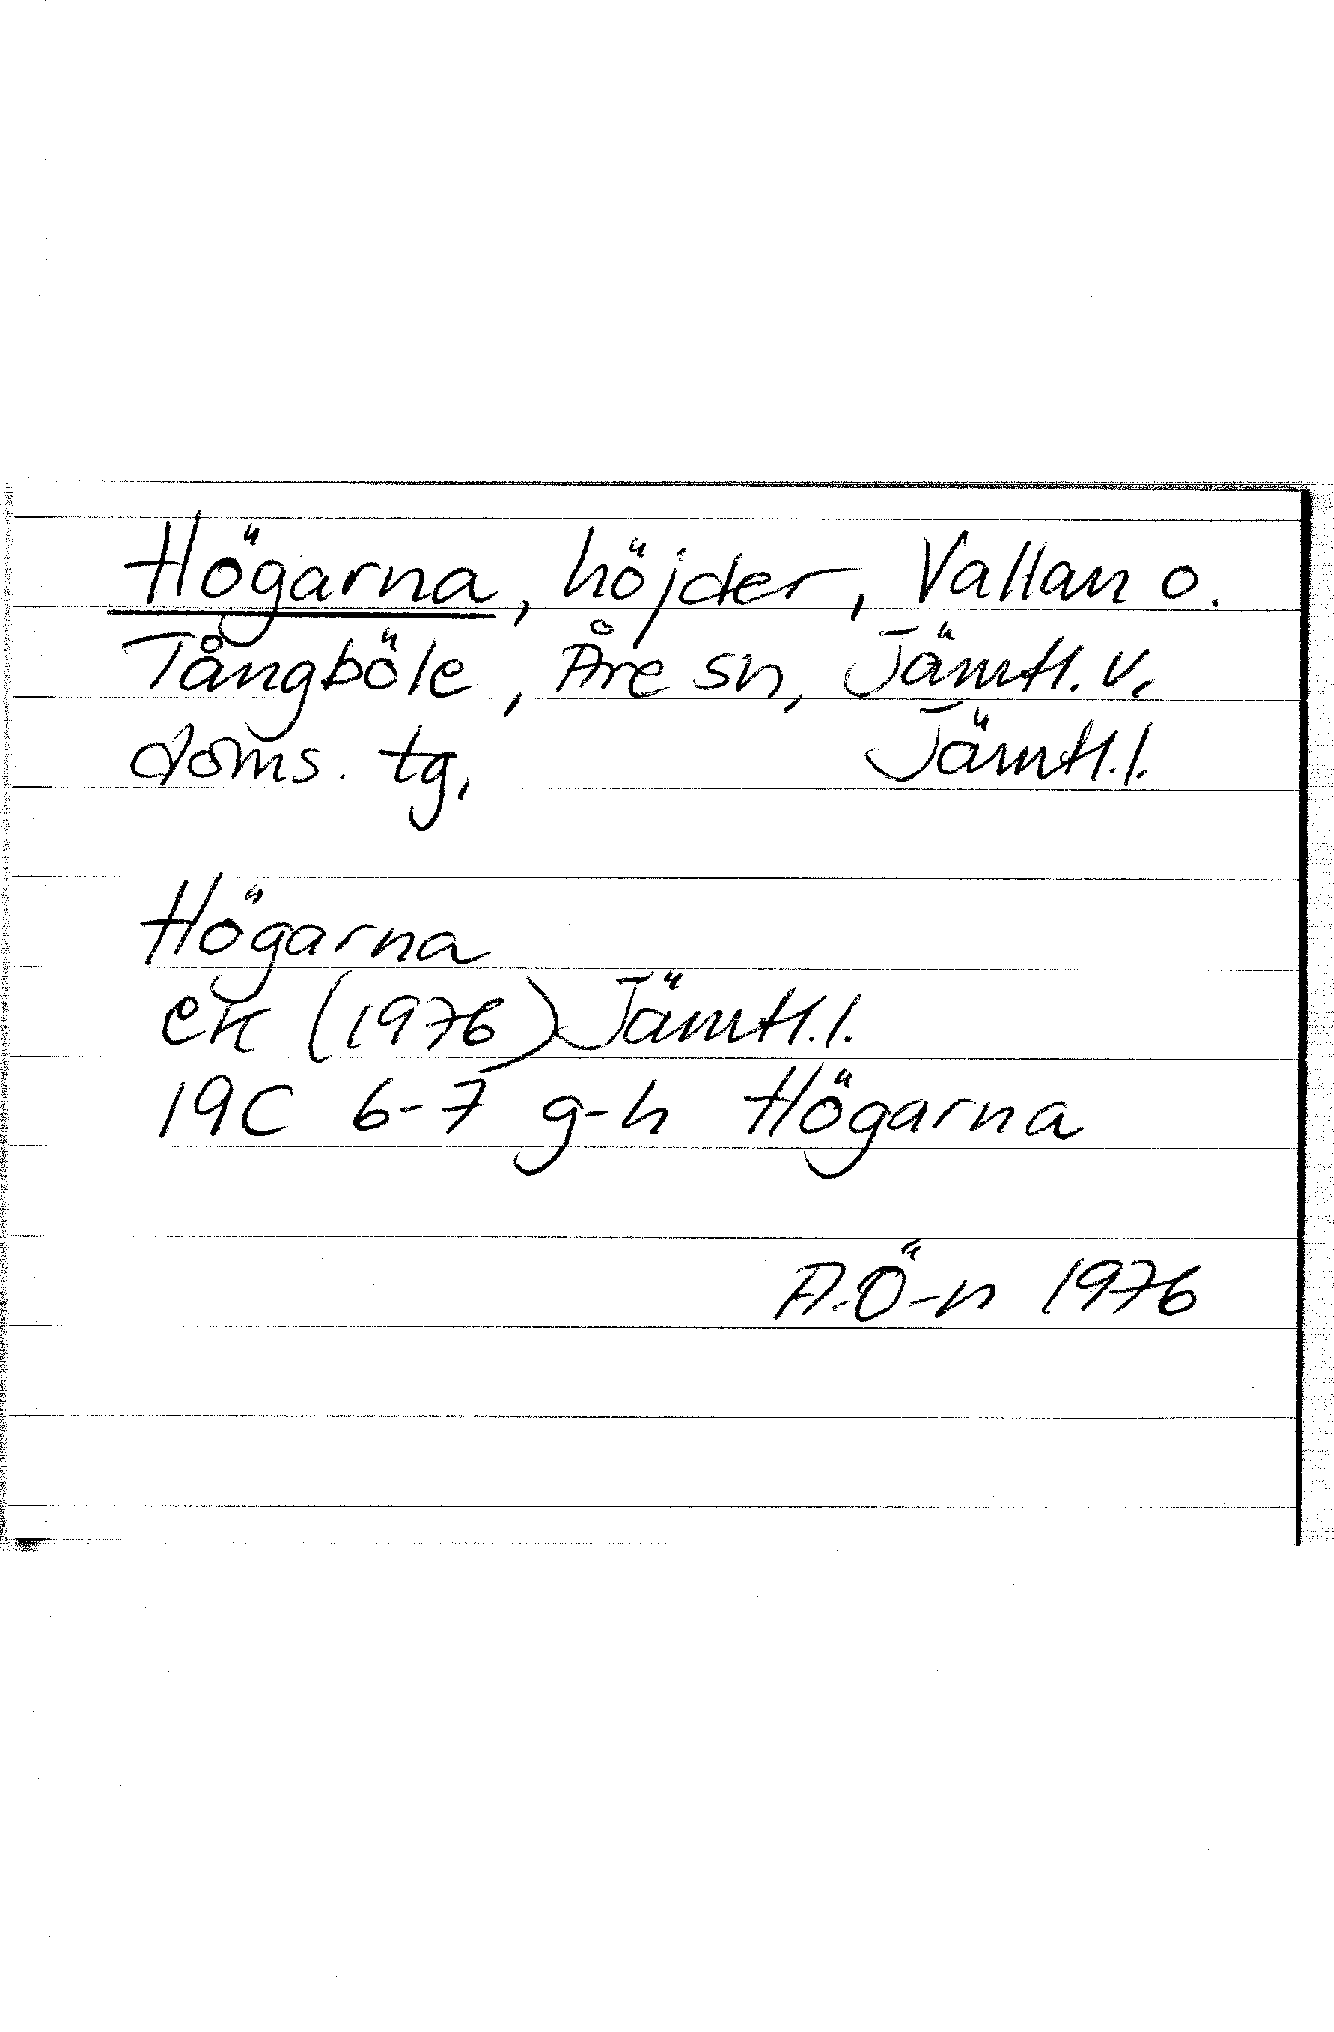 Högarna, höjder, Vallan o.
Tångböle, Åre sn, Jämtl. v.
doms. tg. Jämtl. l.
Högarna
ek (1976) Jämtl. l.
19C 6-7 g-h Högarna
A.Ö-n 1976